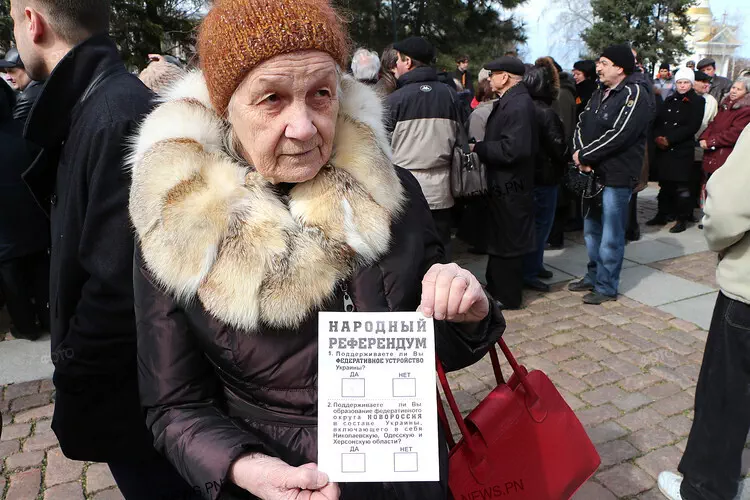 НАРОДНЫЙ
РЕФЕРЕНДУМ
1. Поддерживаете ли Вы
ФЕДЕРАТИВНОЕ УСТРОЙСТВО
Украины?
ДА НЕТ
2. Поддерживаете ли Вы
образование федеративного
округа НОВОРОССИЯ
в составе Украины,
включающего в себя
Николаевскую, Одесскую и
Херсонскую области?
ДА НЕТ
NEWS.PN